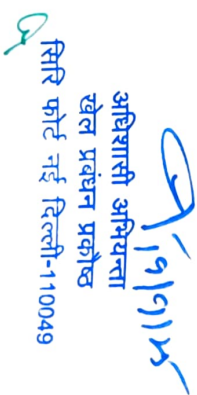 अधिशासी अभियन्ता
खेल प्रबंधन प्रकोष्ठ
सिरि फोर्ट नई दिल्ली-110049